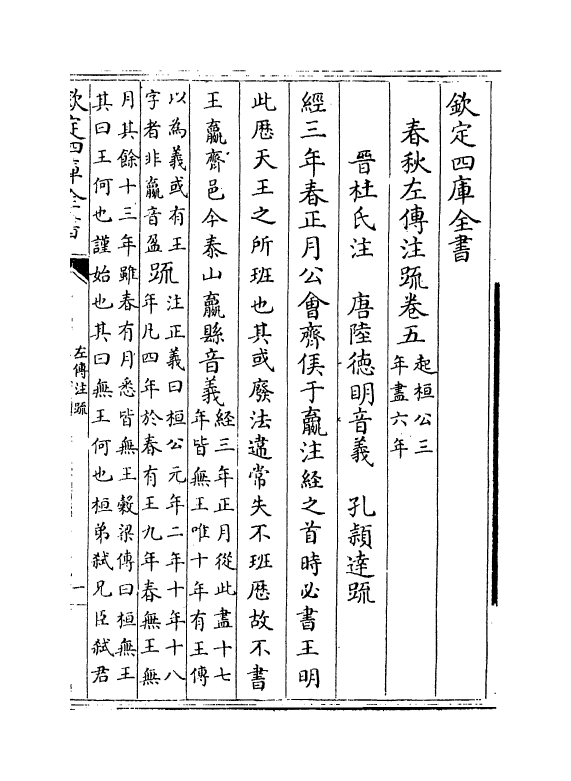 欽定四庫全書
春秋左傳注䟽卷五
起桓公三
年盡六年
晉杜氏注　唐陸徳明音義　孔穎達䟽
經三年春正月公會齊侯于嬴注經之首時必書王明
此厯天王之所班也其或廢法違常失不班厯故不書
王嬴齊邑今泰山嬴縣音義
經三年正月從此盡十七
年皆無王唯十年有王傳
以為義或有王
字者非嬴音盈
䟽
注正義曰桓公元年二年十年十八
年凡四年於春有王九年春無王無
月其餘十三年雖春有月悉皆無王榖梁傳曰桓無王
其曰王何也謹始也其曰無王何也桓弟弑兄臣弑君
左傳注䟽
一